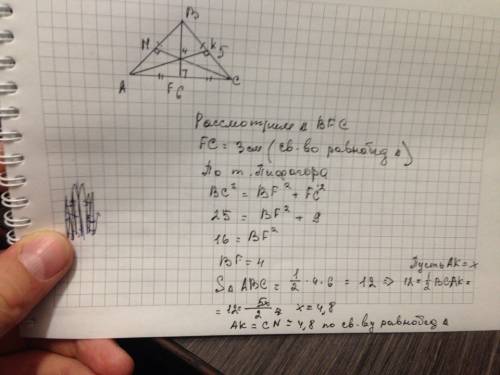 B
N K
4 5
A F C
6
Рассмотрим Δ BFC
FC = 3 см (св-во равнобед Δ)
По т. Пифагора
BC² = BF² + FC²
25 = BF² + 9
16 = BF²
BF = 4
Пусть AK = x
S Δ ABC = 1/2 · 4 · 6 = 12 ⇒ 12 = 1/2 BC·AK =
= 12 = 5x/2 x = 4,8
AK = CN = 4,8 по св-ву равнобед Δ